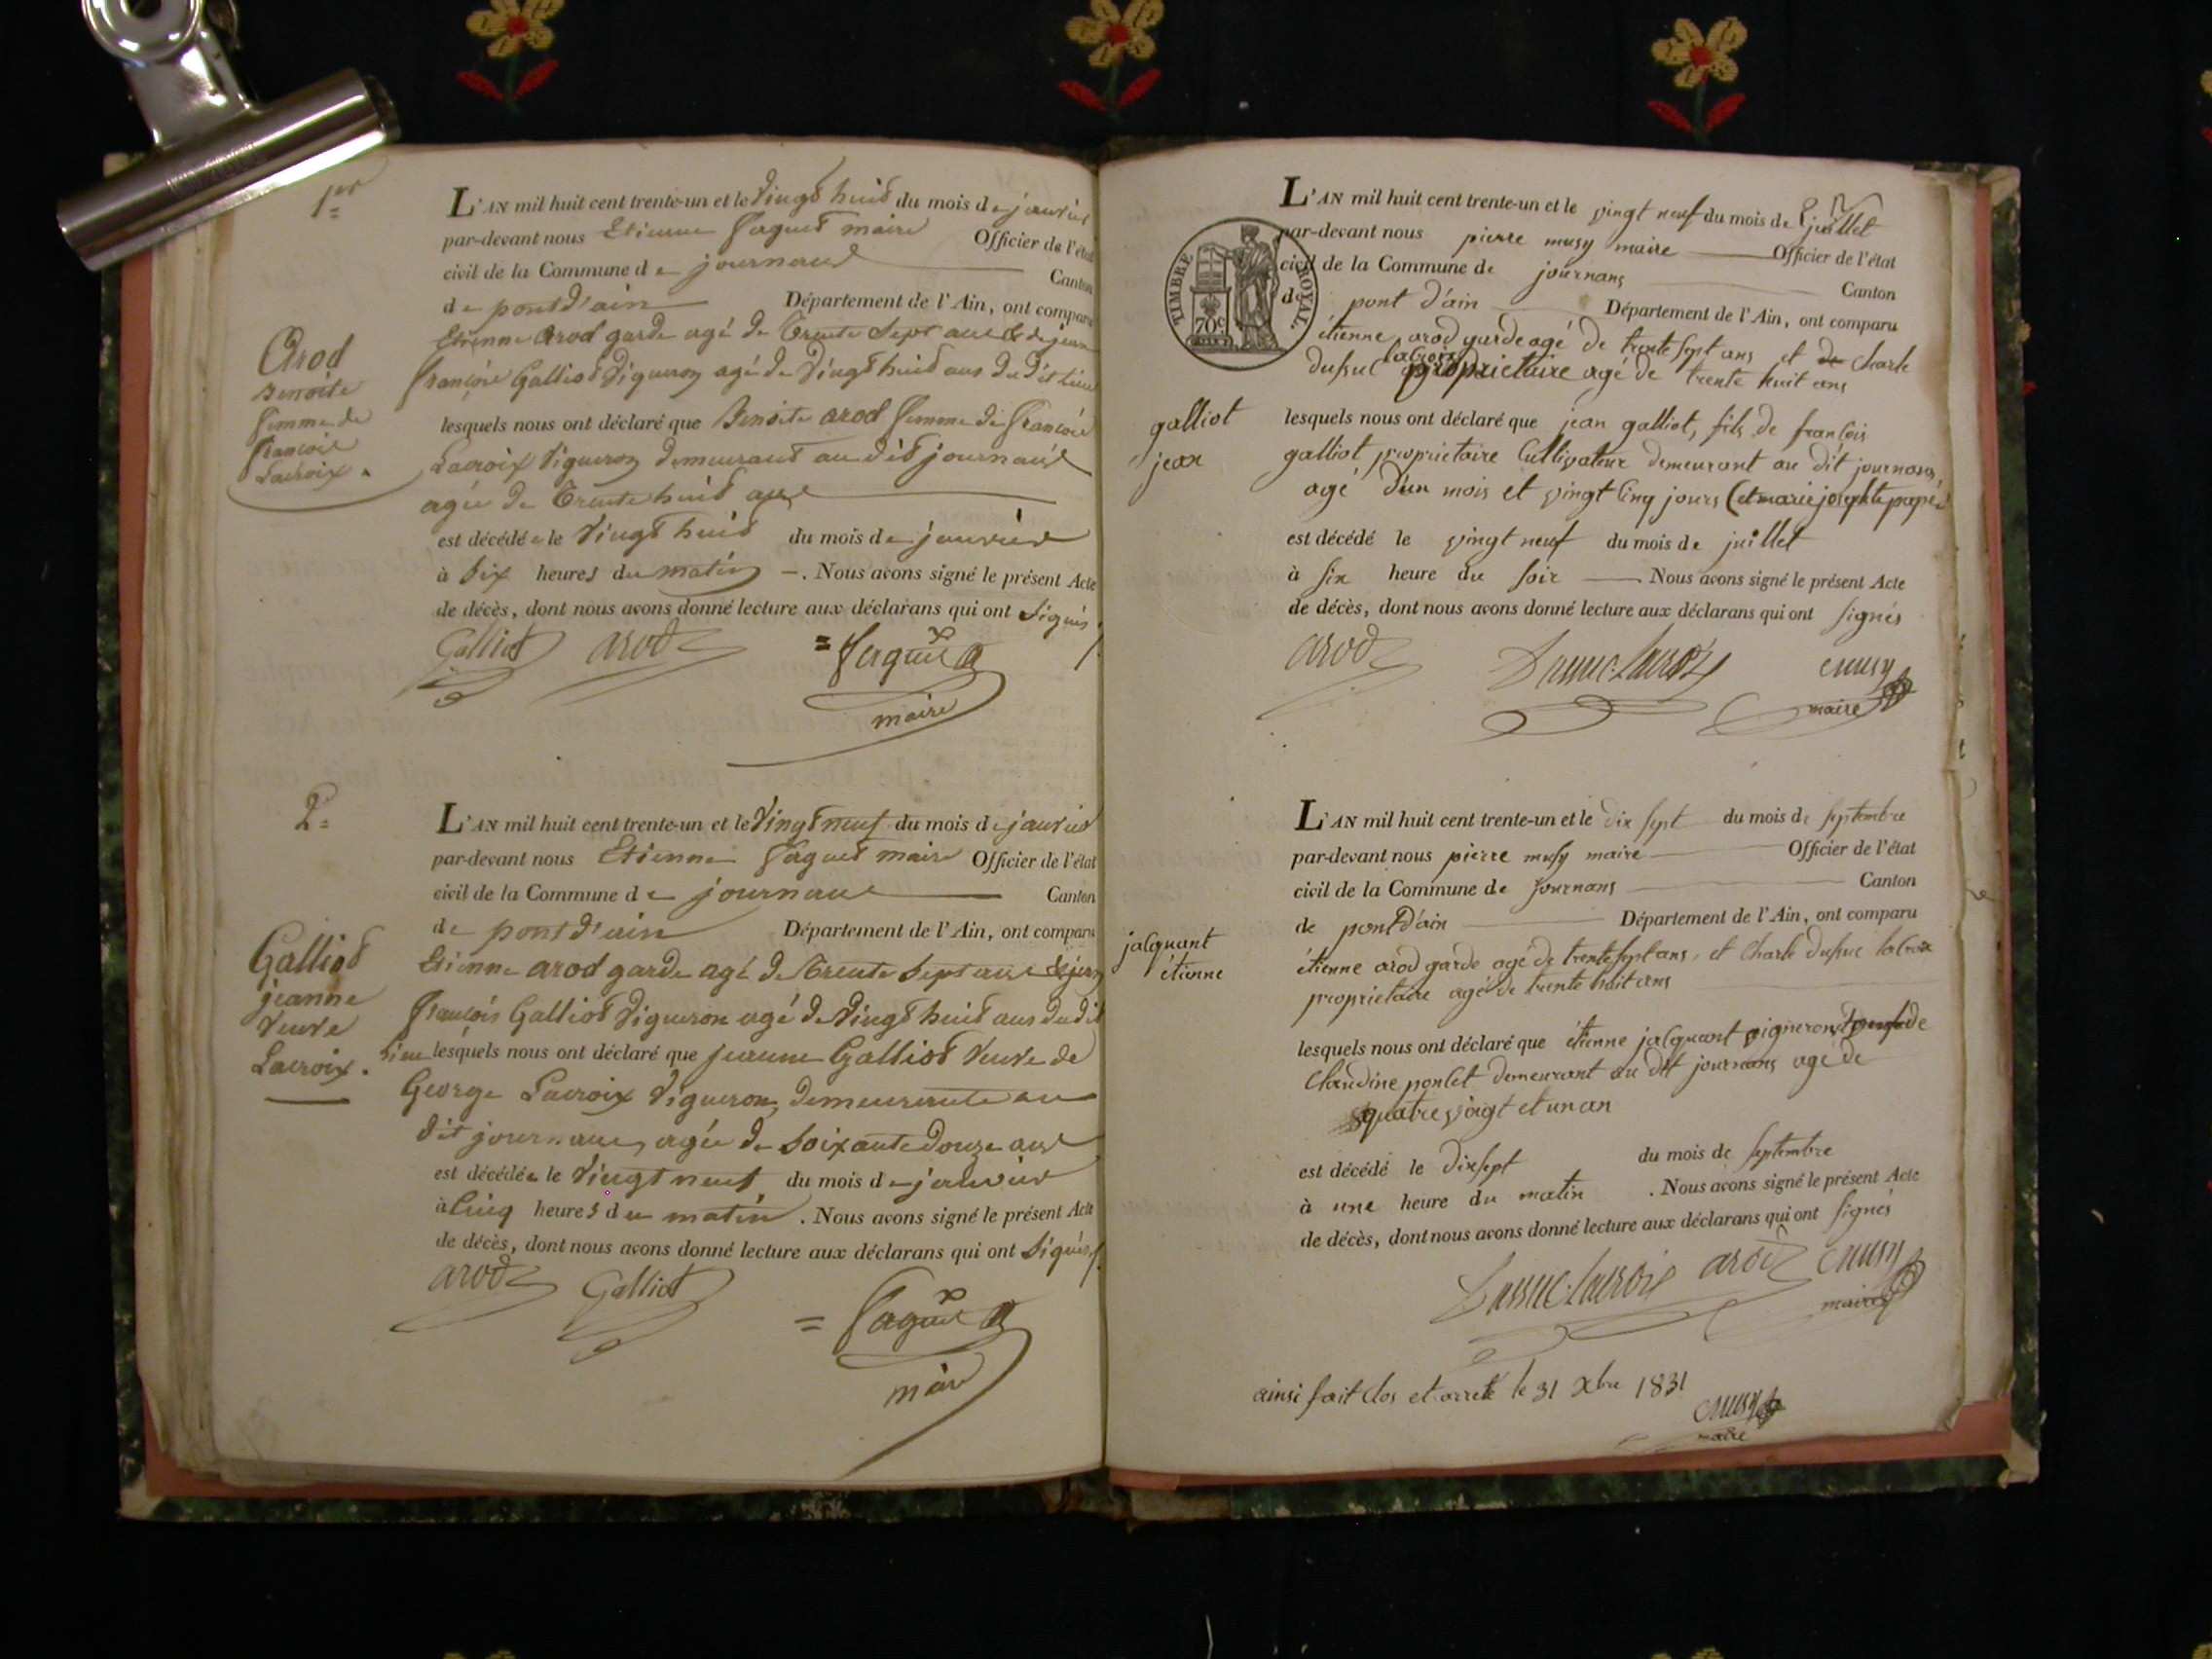 1er
L'AN mil huit cent trente-un et le vingt huit du mois de janvier
par-devant nous Etienne maire Officier de l'état
civil de la Commune de journans Canton
de pont d'ain Département de l'Ain, ont comparu
Etienne Arod garde agé de trente sept ans & de jean
françois Galliot vigneron agé de vingt huit ans du dit lieu
Arod
Benoite
femme de
françois
Lacroix.
lesquels nous ont déclaré que Benoite arod femme de françois
Lacroix vigneron demeurant au dit journans
agée de trente huit ans
est décédée le vingt huit du mois de janvier
à six heures du matin. Nous avons signé le présent Acte
de décès, dont nous avons donné lecture aux déclarans qui ont signés
Galliot arod
maire
2=
L'AN mil huit cent trente-un et le vingt neuf du mois de janvier
par-devant nous Etienne maire Officier de l'état
civil de la Commune de journans Canton
de pont d'ain Département de l'Ain, ont comparu
Etienne arod garde agé de trente sept ans & jean
françois Galliot vigneron agé de vingt huit ans du dit
Galliot
jeanne
veuve
Lacroix.
lieu lesquels nous ont déclaré que jeanne Galliot veuve de
George Lacroix vigneron, demeurante au
dit journans, agée de soixante douze ans
est décédée le vingt neuf du mois de janvier
à cinq heures du matin. Nous avons signé le présent Acte
de décès, dont nous avons donné lecture aux déclarans qui ont signés
arod Galliot
maire
L'AN mil huit cent trente-un et le vingt neuf du mois de juillet
par-devant nous pierre musy maire Officier de l'état
civil de la Commune de journans Canton
de pont d'ain Département de l'Ain, ont comparu
TIMBRE ROYAL.
70c
étienne arod garde agé de trente sept ans et de charle
dufsuc lacroix proprietaire agé de trente huit ans
galliot
jean
lesquels nous ont déclaré que jean galliot, fils de françois
galliot proprietaire cultivateur demeurant au dit journans,
agé d'un mois et vingt cinq jours (et marie josephte
est décédé le vingt neuf du mois de juillet
à six heure du soir Nous avons signé le présent Acte
de décès, dont nous avons donné lecture aux déclarans qui ont signés
arod Dussuc-Lacroix musy
maire
L'AN mil huit cent trente-un et le dix sept du mois de septembre
par-devant nous pierre musy maire Officier de l'état
civil de la Commune de Journans Canton
de pont d'ain Département de l'Ain, ont comparu
étienne arod garde agé de trente sept ans, et charle dufsuc lacroix
proprietaire agé de trente huit ans
jalquant
étienne
lesquels nous ont déclaré que étienne jalquant vigneron de
claudine poncet demeurant au dit journans agé de
quatre vingt et un an
est décédé le dix sept du mois de septembre
à une heure du matin. Nous avons signé le présent Acte
de décès, dont nous avons donné lecture aux déclarans qui ont signés
Dussuc-Lacroix arod musy
maire
ainsi fait clos et arreté le 31 xbre 1831
musy
maire